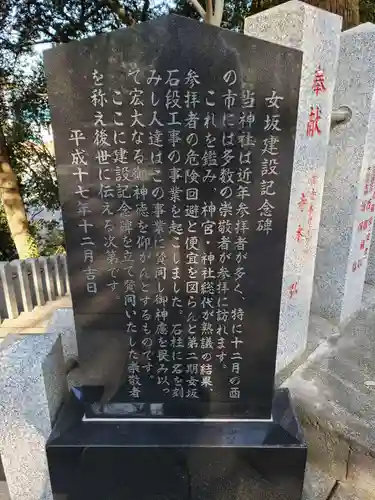 女坂建設記念碑
当神社は近年参拝者が多く、特に十二月の酉
の市には多数の崇敬者が参拝に訪れます。
これを鑑み、神宮・神社総代が熟議の結果、
参拝者の危険回避と便宜を図らんと第二期女坂
石段工事の事業を起こしました。石柱に名を刻
みし人達はこの事業に賛同し御神慮を畏み以っ
て宏大なる御神徳を仰がんとするものです。
ここに建設記念碑を立て賛同いたした崇敬者
を称え後世に伝える次第です。
平成十七年十二月吉日
奉献